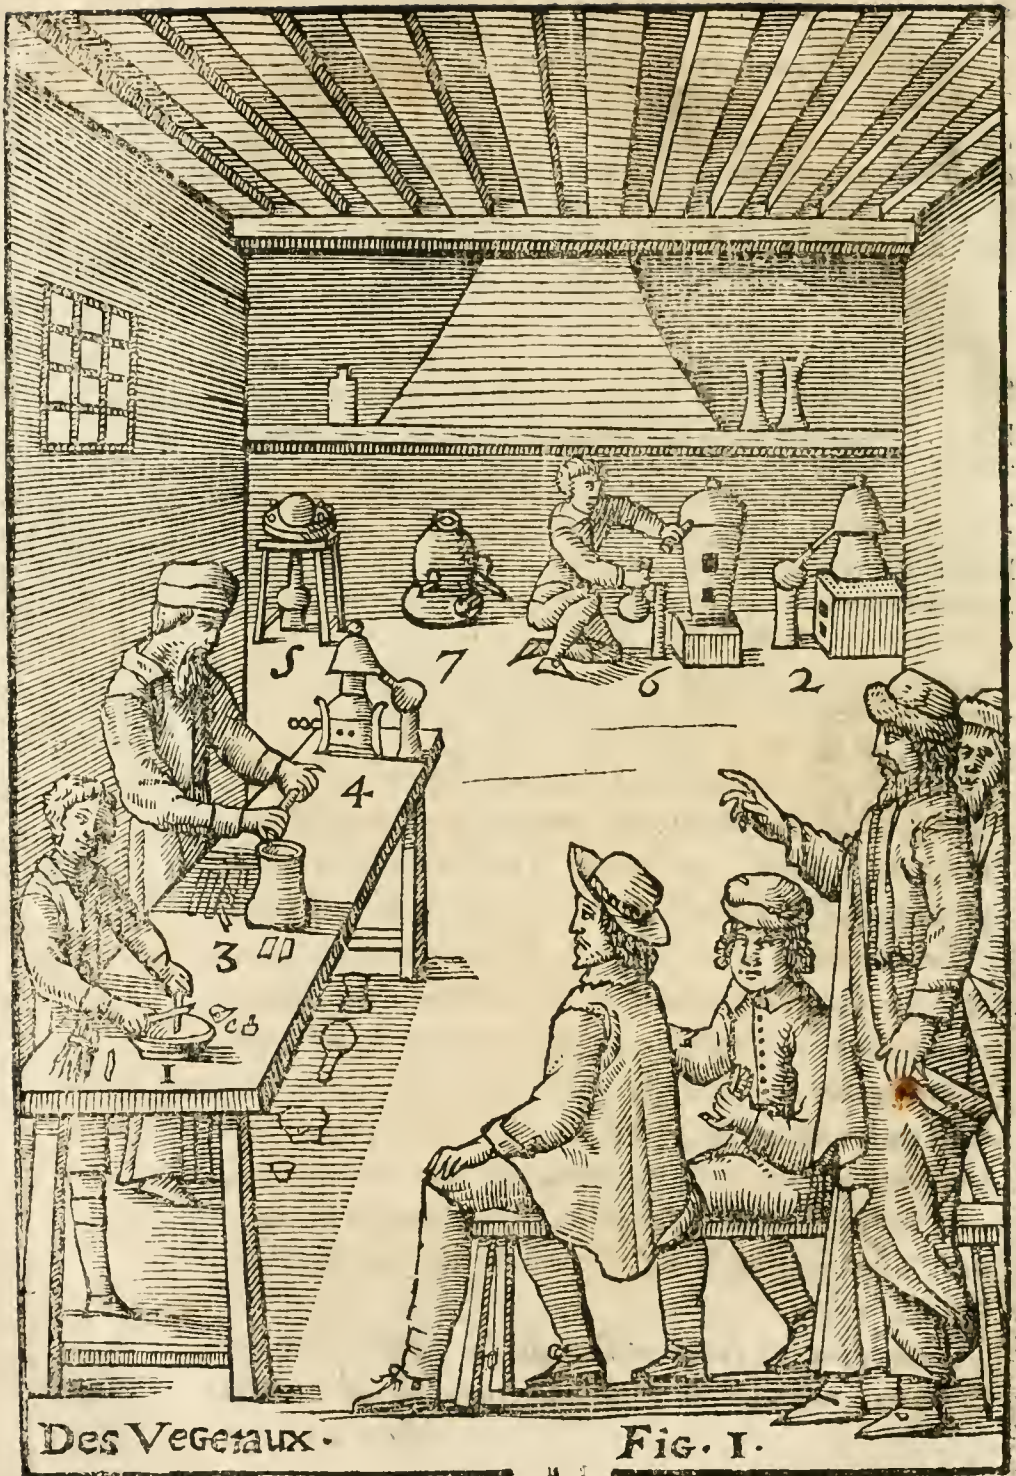 5 7 6 2
4
3
1
Des Vegetaux. Fig. I.